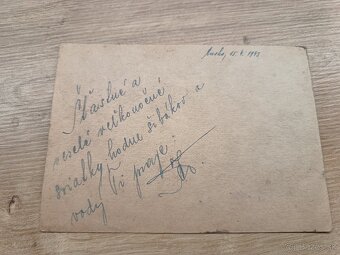 15. 4. 1943
Šťastné a
veselé veľkonočné
sviatky hodne šibákov a
vody Ti praje